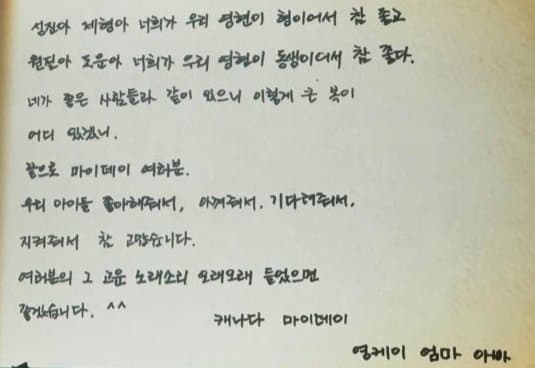 성진아 제형아 너희가 우리 영현이 형이어서 참 좋고
원필아 도운아 너희가 우리 영현이 동생이어서 참 좋다.
네가 좋은 사람들과 같이 있으니 이렇게 큰 복이
어디 있겠니.
끝으로 마이데이 여러분.
우리 아이들 좋아해줘서, 아껴줘서, 기다려줘서,
지켜줘서 참 고맙습니다.
여러분의 그 고운 노래소리 오래오래 들었으면
좋겠습니다. ^^
캐나다 마이데이
영케이 엄마 아빠